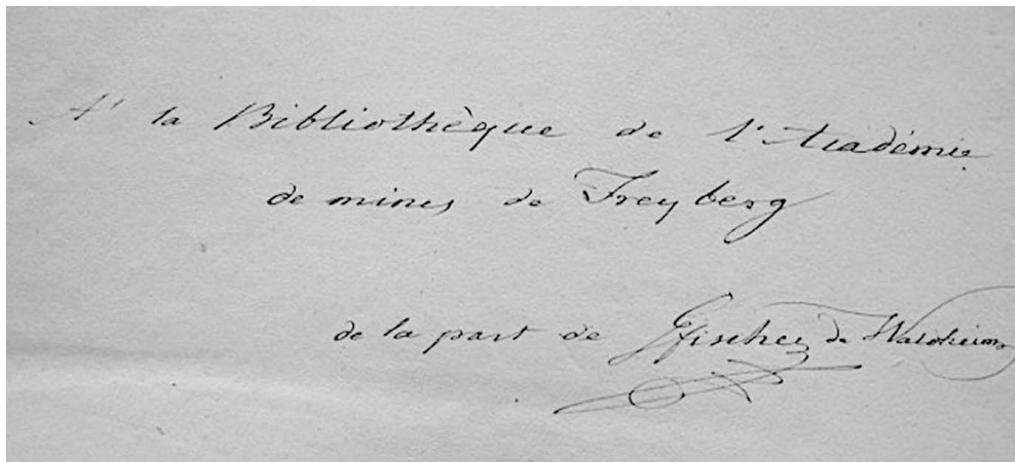 A' la Bibliothèque de l'Académie
de mines de Freyberg
de la part de Gfischer de Waldheim